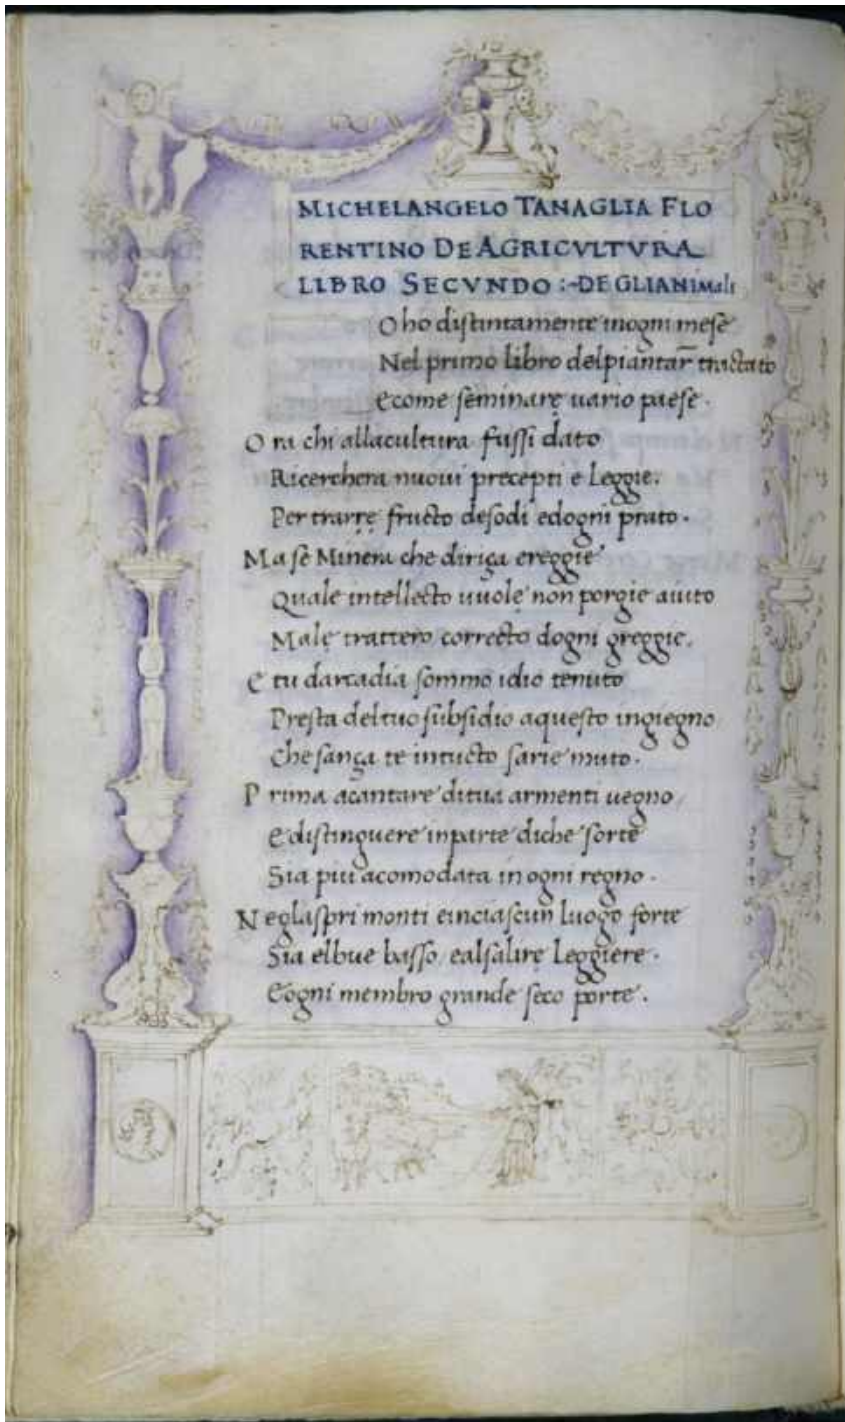 MICHELANGELO TANAGLIA FLO
RENTINO DE AGRICVLTVRA
LIBRO SECVNDO :~DE GLIANIMali
O ho distintamente inogni mese
Nel primo libro delpiantar̄ tractato
E come seminare uario paese.
O ra chi allacultura fussi dato
Ricerchera nuoui precepti e Leggie.
Per trarre fructo desodi edogni prato.
M a se Minerua che diriça ereggie
Quale intellecto uuole non porgie aiuto
Male trattero correcto dogni greggie.
E tu darcadia sommo idio tenuto
Presta deltuo subsidio aquesto ingiegno
Che sança te intucto sarie muto.
P rima acantare ditua armenti uegno
E distinguere inparte diche sorte
Sia piu acomodata in ogni regno.
N eglaspri monti einciascun luogo forte
Sia elbue basso, ealsalire Leggiere.
E ogni membro grande seco porte.